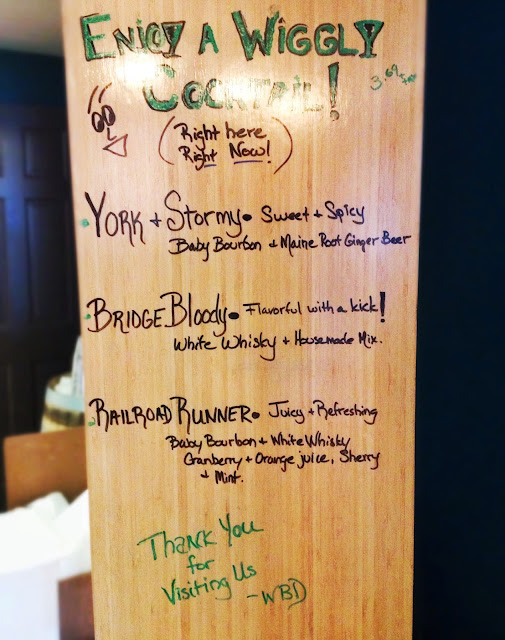 ENJOY A WIGGLY
COCKTAIL!
(Right here
Right Now!)
YORK + STORMY • Sweet + Spicy
Baby Bourbon + Maine Root Ginger Beer
BRIDGE BLOODY • Flavorful with a kick!
White Whisky + Housemade Mix.
RAILROAD RUNNER • Juicy + Refreshing
Baby Bourbon + White Whisky
Cranberry + Orange juice, Sherry
+ Mint.
THANK YOU
for
Visiting Us
-WBD